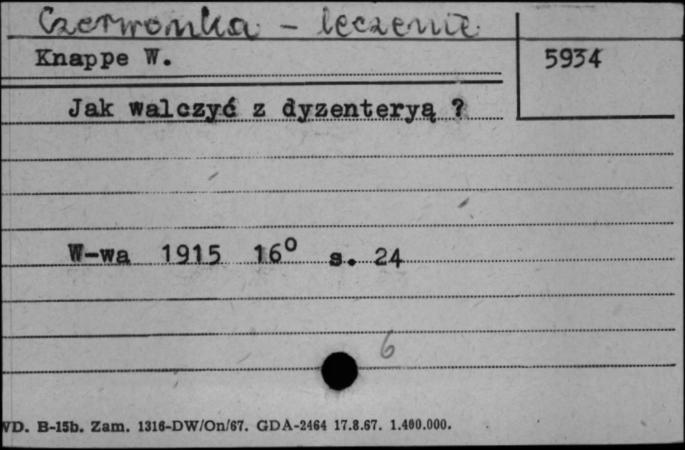 Czerwonka - leczenie
Knappe W.
5934
Jak walczyć z dyzenteryą ?
W-wa 1915 16° s. 24
6
WD. B-15b. Zam. 1316-DW/On/67. GDA-2464 17.8.67. 1.400.000.